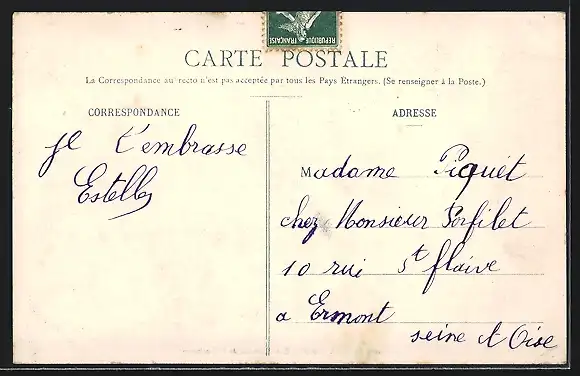 REPUBLIQUE FRANÇAISE
CARTE POSTALE
La Correspondance au recto n'est pas acceptée par tous les Pays Etrangers. (Se renseigner à la Poste.)
CORRESPONDANCE
je t'embrasse
Estelle
ADRESSE
Madame Piquet
chez Monsieur Porfilet
10 rui St flaive
a Ermont
seine et Oise